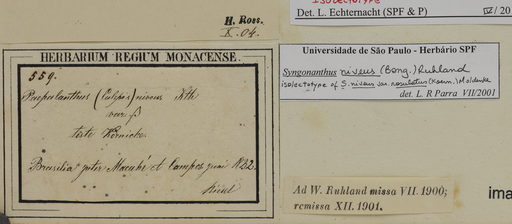 ISOLECTOTYPE
Det. L. Echternacht (SPF & P) IV/ 20
H. Ross.
X. 04.
HERBARIUM REGIUM MONACENSE.
559.
Paepalanthus (Eulpis) niveus Kth
var. β
teste Körnicke.
Brasilia inter Macahé et Campos 1832.
Riedel
Universidade de São Paulo - Herbário SPF
Syngonanthus niveus (Bong.) Ruhland
isolectotype of S. niveus var. rosulatus (Koern.) Moldenke
det. L. R Parra VII/2001
Ad W. Ruhland missa VII. 1900;
remissa XII. 1901.
ima